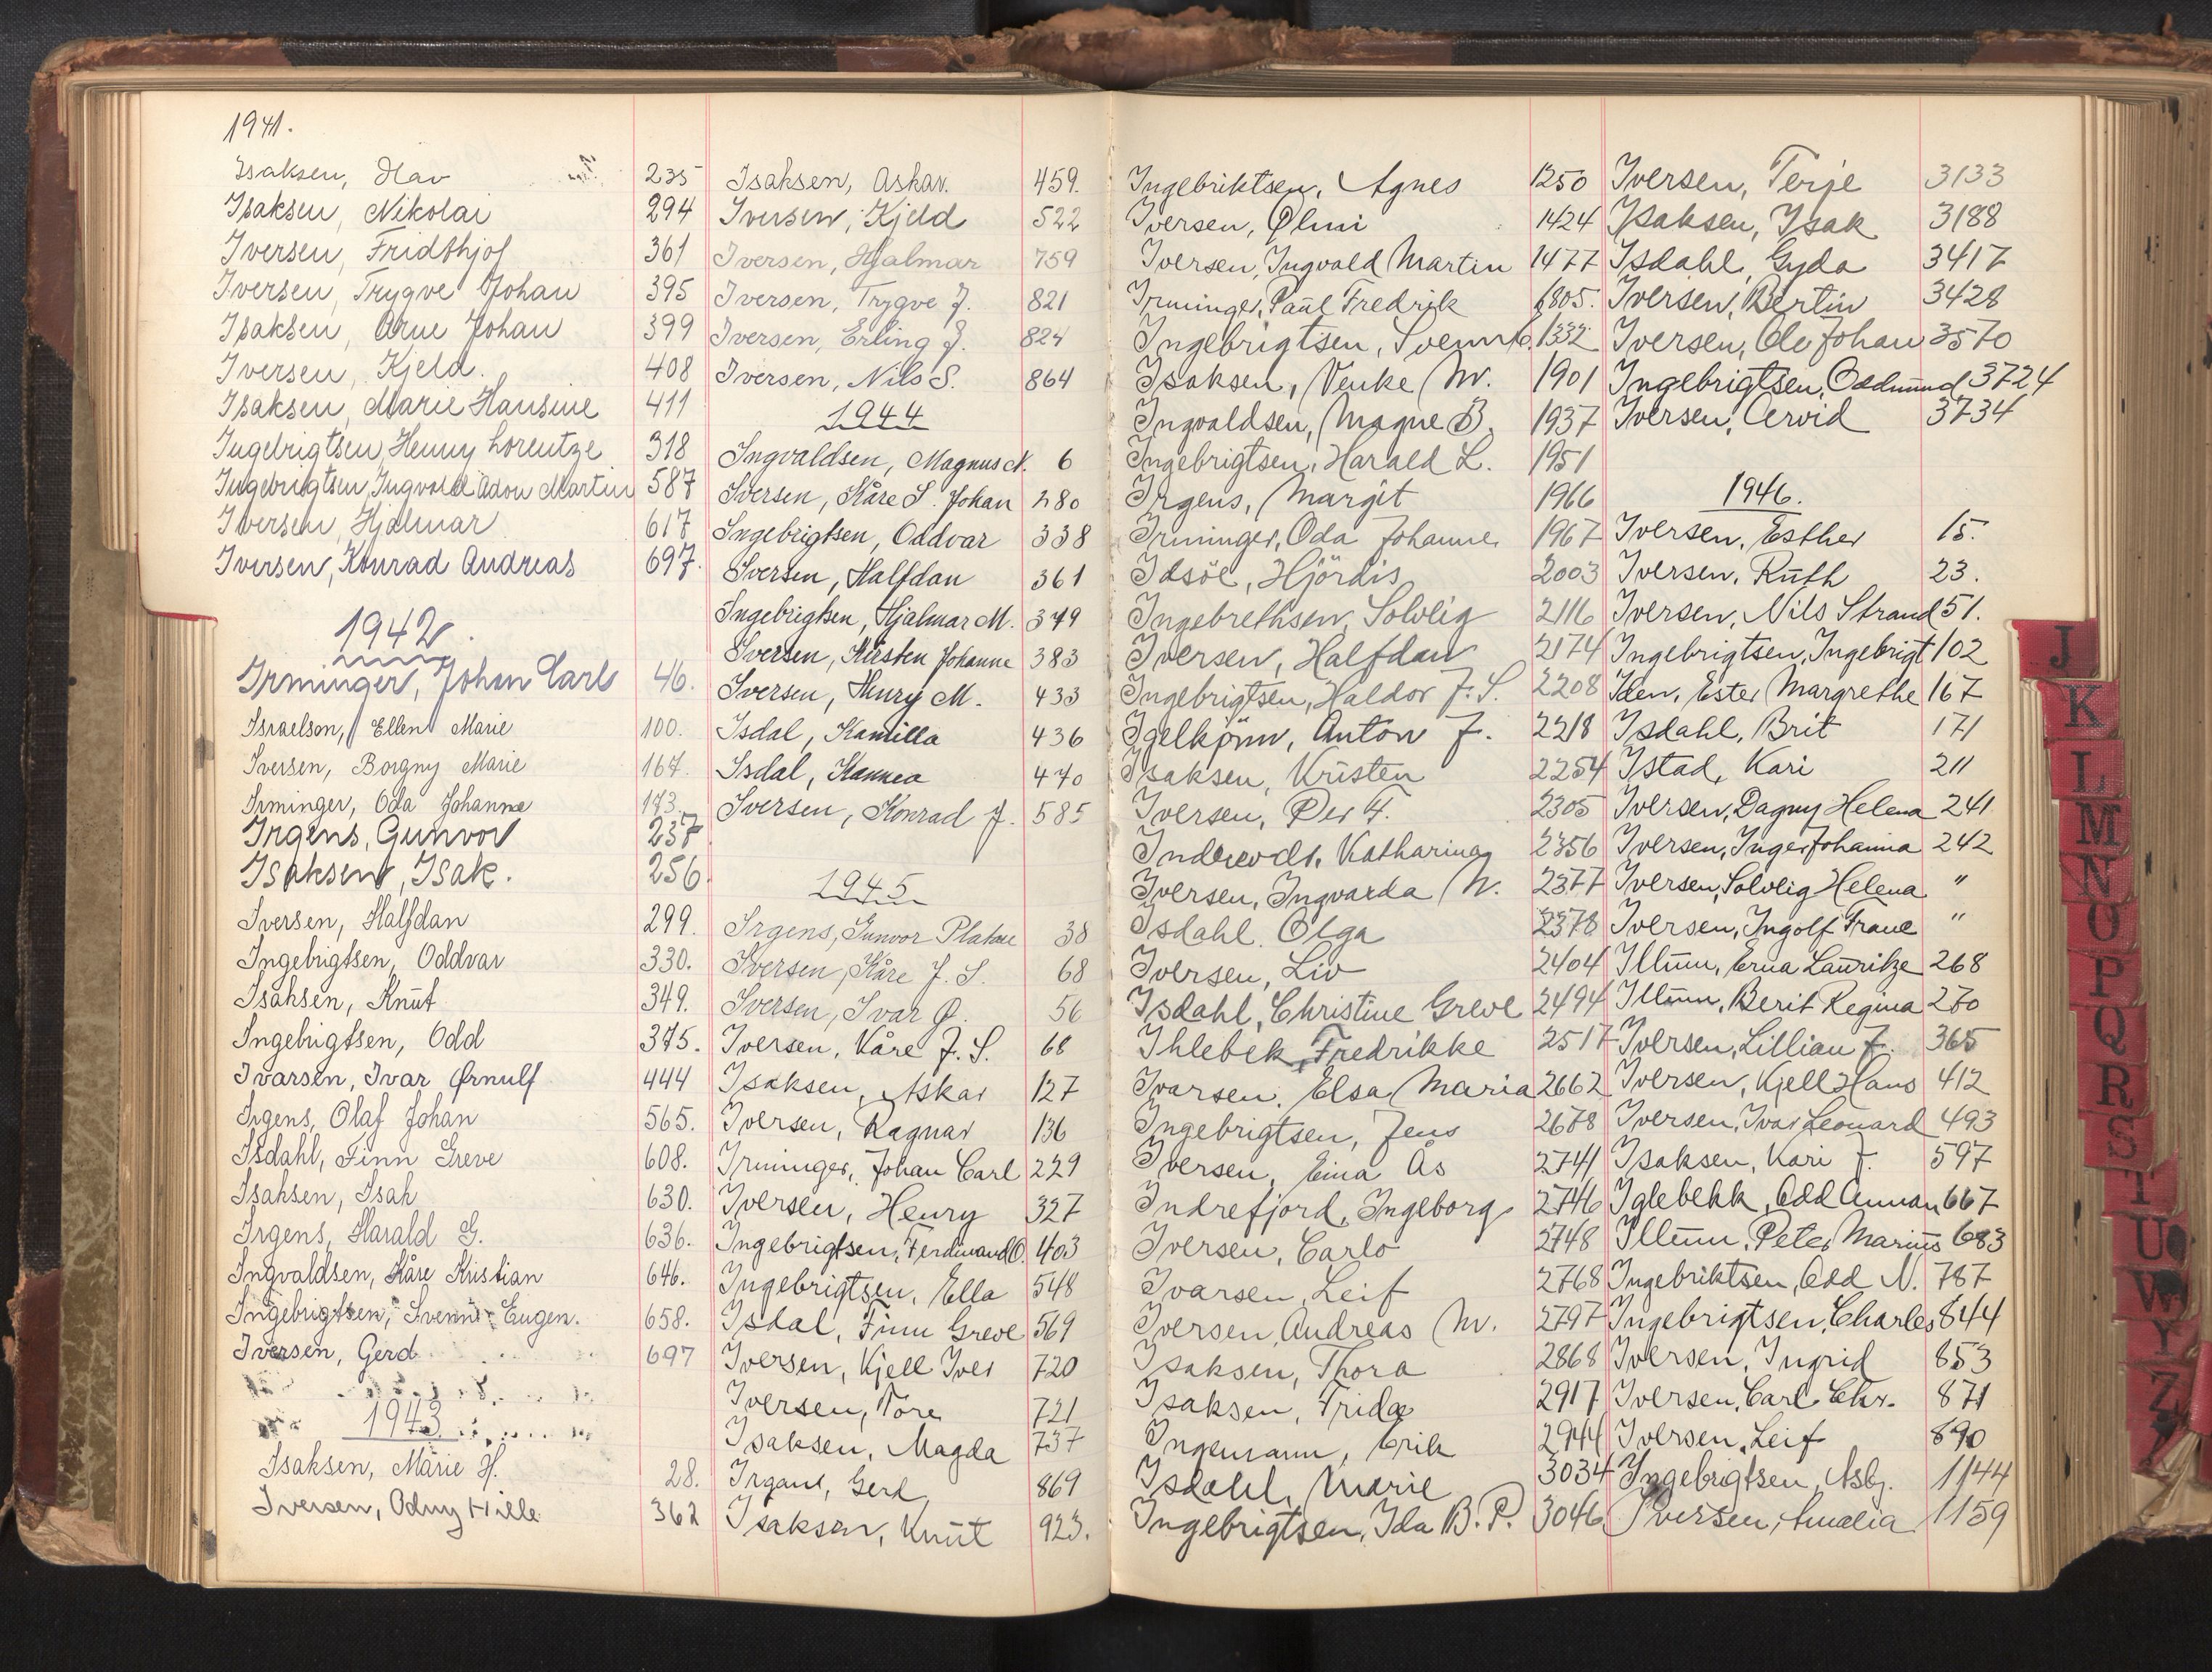 1941.
Isaksen, Olav 235
Isaksen, Nikolai 294
Iversen, Fridthjof 361
Iversen, Trygve Johan 395
Isaksen, Arne Johan 399
Iversen, Kjeld. 408
Isaksen, Marie Hansine 411
Ingebrigtsen, Henny Lorentze 318
Ingebrigtsen, Ingvald Adon Martin 587
Iversen, Hjalmar 617
Iversen, Konrad Andreas 697.
1942.
Irminger, Johan Carl 46.
Israelson, Ellen Marie 100.
Iversen, Borgny Marie 167.
Irminger, Oda Johanne 173.
Irgens, Gunvor 237
Isaksen, Isak. 256.
Iversen, Halfdan 299.
Ingebrigtsen, Oddvar 330.
Isaksen, Knut 349.
Ingebrigtsen, Odd 375.
Ivarsen, Ivar Ørnulf 444
Irgens, Olaf Johan 565.
Isdahl, Finn Greve 608.
Isaksen, Isak 630.
Irgens, Harald G. 636.
Ingvaldsen, Kåre Kristian 646.
Ingebrigtsen, Svenn Eugen. 658.
Iversen, Gerd 697
1943.
Isaksen, Marie H. 28.
Iversen, Odny Hille 362
Isaksen, Askar. 459.
Iversen, Kjeld 522
Iversen, Hjalmar 759
Iversen, Trygve J. 821
Iversen, Erling J. 824
Iversen, Nils S. 864
1944
Ingvaldsen, Magnus N. 6
Iversen, Kåre S. Johan 280
Ingebrigtsen, Oddvar 338
Iversen, Halfdan 361
Ingebrigtsen, Hjalmar M. 379
Iversen, Kirsten Johanne 383
Iversen, Henry M. 433
Isdal, Kamilla 436
Isdal, Hanna 470
Iversen, Konrad J. 585
1945
Irgens, Gunvor Platou 38
Iversen, Kåre J. S. 68
Iversen, Ivar Ø. 56
Iversen, Kåre J. S. 68
Isaksen, Askar 127
Iversen, Ragnar 136
Irminger, Johan Carl 229
Iversen, Henry 327
Ingebrigtsen, Ferdinand O. 403
Ingebrigtsen, Ella 548
Isdal, Finn Greve 569
Iversen, Kjell Iver 720
Iversen, Tore 721
Isaksen, Magda 737
Irgens, Gerd 869
Isaksen, Knut 923.
Ingebriktsen, Agnes 1250
Iversen, Ølmi 1424
Iversen, Ingvald Martin 1477
Irminger, Paul Fredrik 1805.
Ingebrigtsen, Svenn 1332
Isaksen, Venke M. 1901
Ingvaldsen, Magne B. 1937
Ingebrigtsen, Harald L. 1951
Irgens, Margit 1966
Irminger, Oda Johanne 1967
Idsöe, Hjördis 2003
Ingebrethsen, Solveig 2116
Iversen, Halfdan 2174
Ingebrigtsen, Haldor J. S. 2208
Igelkjönn, Anton J. 2218
Isaksen, Kristen 2254
Iversen, Per F. 2305
Katharina 2356
Iversen, Ingvarda M. 2377
Isdahl. Olga 2378
Iversen, Liv 2404
Isdahl, Christine Greve 2494
Ihlebek, Fredrikke 2517
Ivarsen. Elsa Maria 2662
Ingebrigtsen, Jens 2678
Iversen, Eina Ås 2741
Indrefjord, Ingeborg 2746
Iversen, Carlo 2748
Ivarsen, Leif 2768
Iversen, Andreas M. 2797
Isaksen, Thora 2868
Isaksen, Frida 2917
Ingemann, Erik 2944
Isdahl, Marie 3034
Ingebrigtsen, Ida B. P. 3046
Iversen, Terje 3133
Isaksen, Isak 3188
Isdahl, Gyda 3417
Iversen, Bertin 3428
Iversen, Ole Johan 3570
Ingebrigtsen, Oddmund 3724
Iversen, Arvid 3734
1946.
Iversen, Esther 15.
Iversen, Ruth 23.
Iversen, Nils Strand 51.
Ingebrigtsen, Ingebrigt 102
Iden, Ester Margrethe 167
Isdahl, Brit 171
Istad, Kari 211
Iversen, Dagny Helena 241
Iversen, Inger Johanna 242
Iversen, Solveig Helena "
Iversen, Ingolf Frane "
Illum, Erna Lauritze 268
Illum, Berit Regina 270
Iversen, Lillian J. 365
Iversen, Kjell Hans 412
Iversen, Ivar Leonard 493
Isaksen, Kari J. 597
Iglebekk, Odd Annan 667
Illum, Peter Marius 683
Ingebriktsen, Odd N. 787
Ingebrigtsen, Charles 844
Iversen, Ingrid 853
Iversen, Carl Chr. 871
Iversen, Leif 890
Ingebrigtsen, Asbj. 1144
Iversen, Amalia 1159
J
K
L
M
N
O
P
Q
R
S
T
U
W
Y
Z